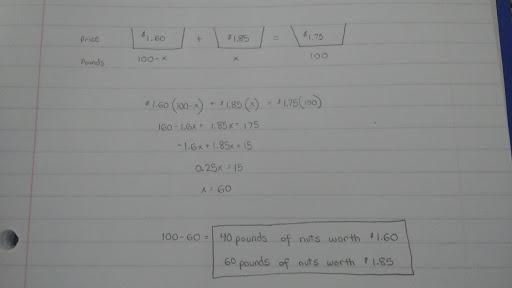 Price $1.60 + $1.85 = $1.75
Pounds 100-x x 100
$1.60 (100-x) + $1.85 (x) = $1.75 (100)
160-1.6x + 1.85x = 175
-1.6x + 1.85x = 15
0.25x = 15
x = 60
100-60 = 40 pounds of nuts worth $1.60
60 pounds of nuts worth $1.85